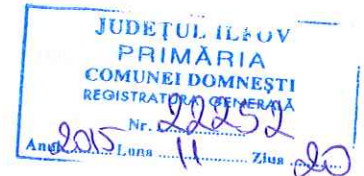 JUDEŢUL ILFOV
PRIMĂRIA
COMUNEI DOMNEŞTI
REGISTRATURA GENERALĂ
Nr. 22252
Anul 2015 Luna 11 Ziua 20